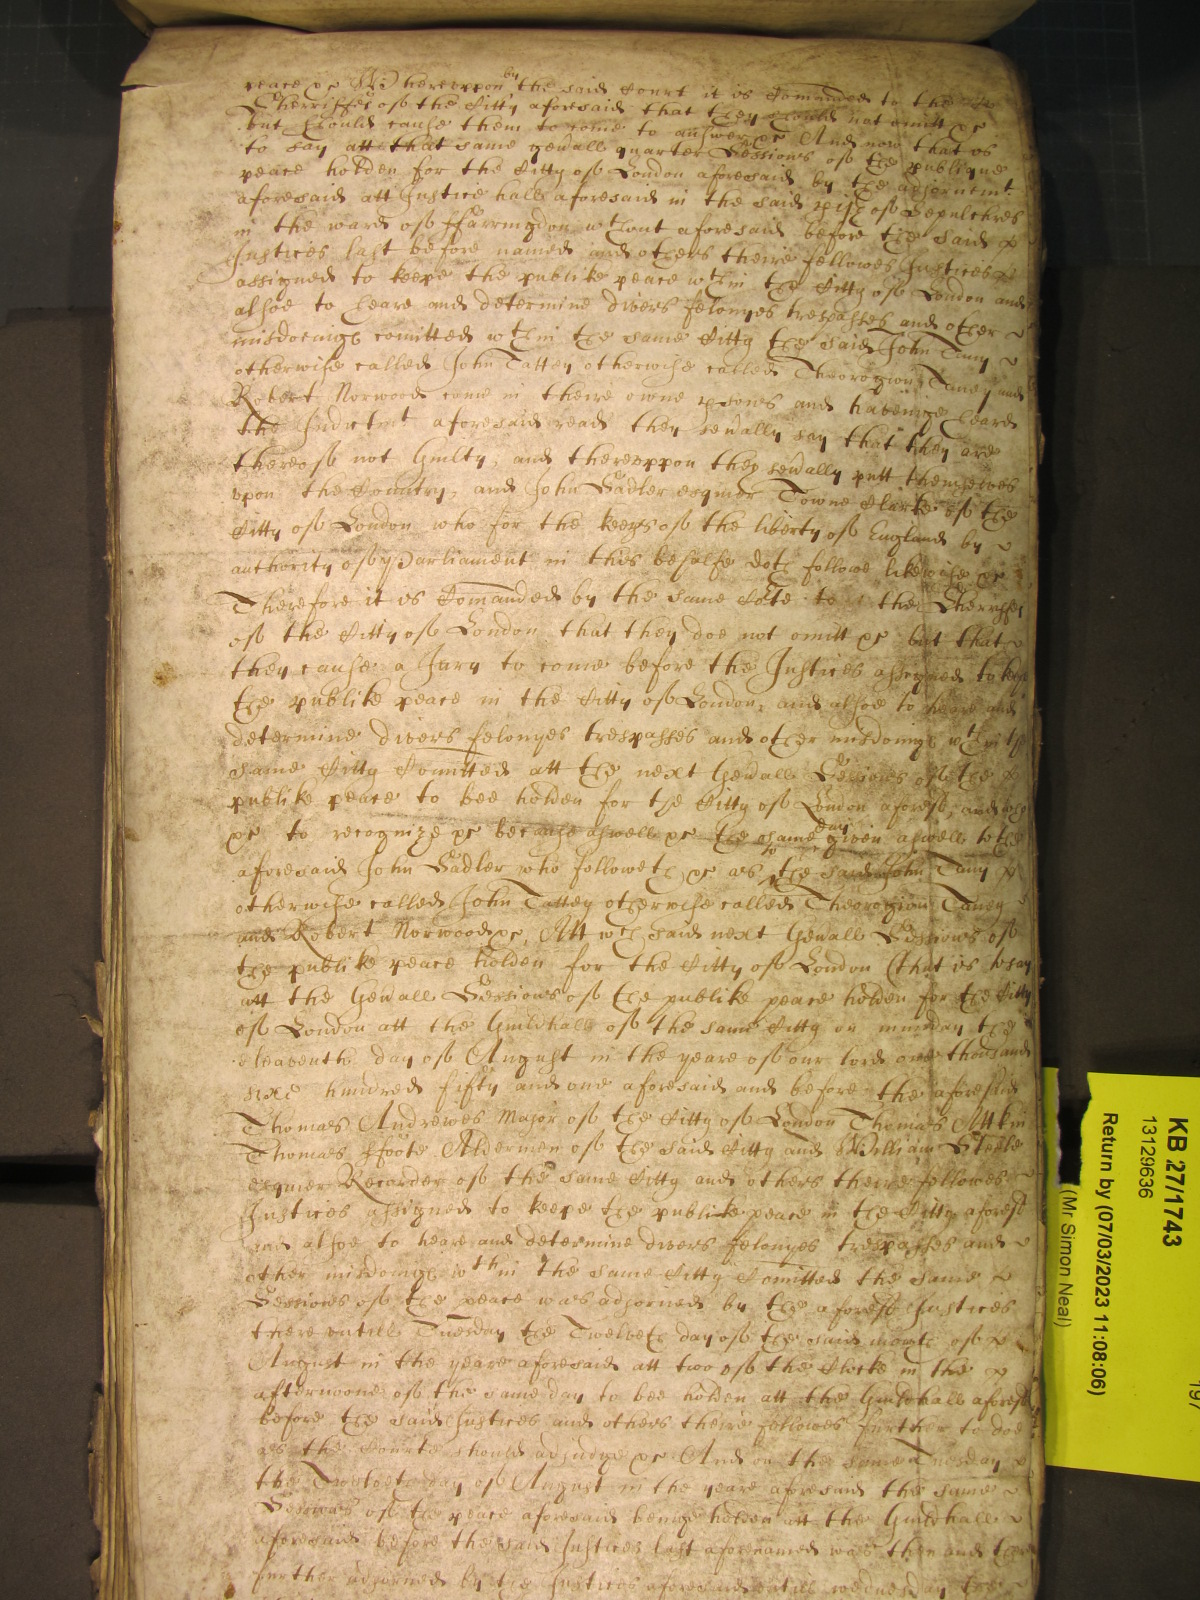 peace &c Whereuppon by the said Court it is Comanded to the
Sherriffes of the Citty aforesaid that they should not omitt &c
but should cause them to come to answer &c And now that is
to say att that same gen'all quarter Sessions of the publique
peace holden for the Citty of London aforesaid by the adjornmt
aforesaid att Justice hall aforesaid in the said p'ish of Sepulchres
in the ward of Ffarringdon wthout aforesaid before the said
Justices last before named and others theire fellowes Justices
assigned to keepe the publike peace wthin the Citty of London and
alsoe to heare and determine divers felonyes trespasses and other
misdoeings comitted wthin the same Citty the said John Tany
otherwise called John Tattey otherwise called Theorogion Taney and
Robert Norwood come in theire owne p'sons and haveinge heard
the Indictmt aforesaid read they sev'ally say that they are
thereof not Guilty, and thereuppon they sev'ally putt themselves
upon the Country, and John Sadler esquier Towne Clarke of the
Citty of London who for the keep's of the liberty of England by
authority of Parliament in this behalfe doth followe likewise &c
Therefore it is Comanded by the same Co'te to the Sherriffes
of the Citty of London that they doe not omitt &c but that
they cause a Jury to come before the Justices assigned to keep
the publike peace in the Citty of London, and alsoe to heare and
determine divers felonyes trespasses and other misdoings wthin the
same Citty Comitted att the next Gen'all Sessions of the
publike peace to bee holden for the Citty of London aforesd, and who
&c to recognize &c because aswell &c the same day given aswell to the
aforesaid John Sadler who followeth &c as to the said John Tany
otherwise called John Tattey otherwise called Theorogion Taney
and Robert Norwood &c, Att wch said next Gen'all Sessions of
the publike peace holden for the Citty of London (that is to say
att the Gen'all Sessions of the publike peace holden for the Citty
of London att the Guildhall of the same Citty on munday the
eleaventh day of August in the yeare of our lord one thousand
sixe hundred fifty and one aforesaid and before the aforesaid
Thomas Andrewes Major of the Citty of London Thomas Atkin
Thomas Ffoote Aldermen of the said Citty and William Steele
esquier Recorder of the same Citty and others theire fellowes
Justices assigned to keepe the publike peace in the Citty aforesd
and alsoe to heare and determine divers felonyes trespasses and
other misdoeings wthin the same Citty Comitted the same
Sessions of the peace was adjorned by the aforesd Justices
there untill Tuesday the Twelveth day of the said month of
August in the yeare aforesaid att two of the Clocke in the
afternoone of the same day to bee holden att the Guildhall aforesd
before the said Justices and others theire fellowes further to doe
as the Courte should adjudge &c And on the same Tuesday
the Twelveth day of August in the yeare aforesaid the same
Sessions of the peace aforesaid beinge holden att the Guildhall
aforesaid before the said Justices last aforenamed was then and there
further adjorned by the Justices aforesaid untill wednesday the
KB 27/1743
13129636
Return by (07/03/2023 11:08:06)
(Mr Simon Neal)